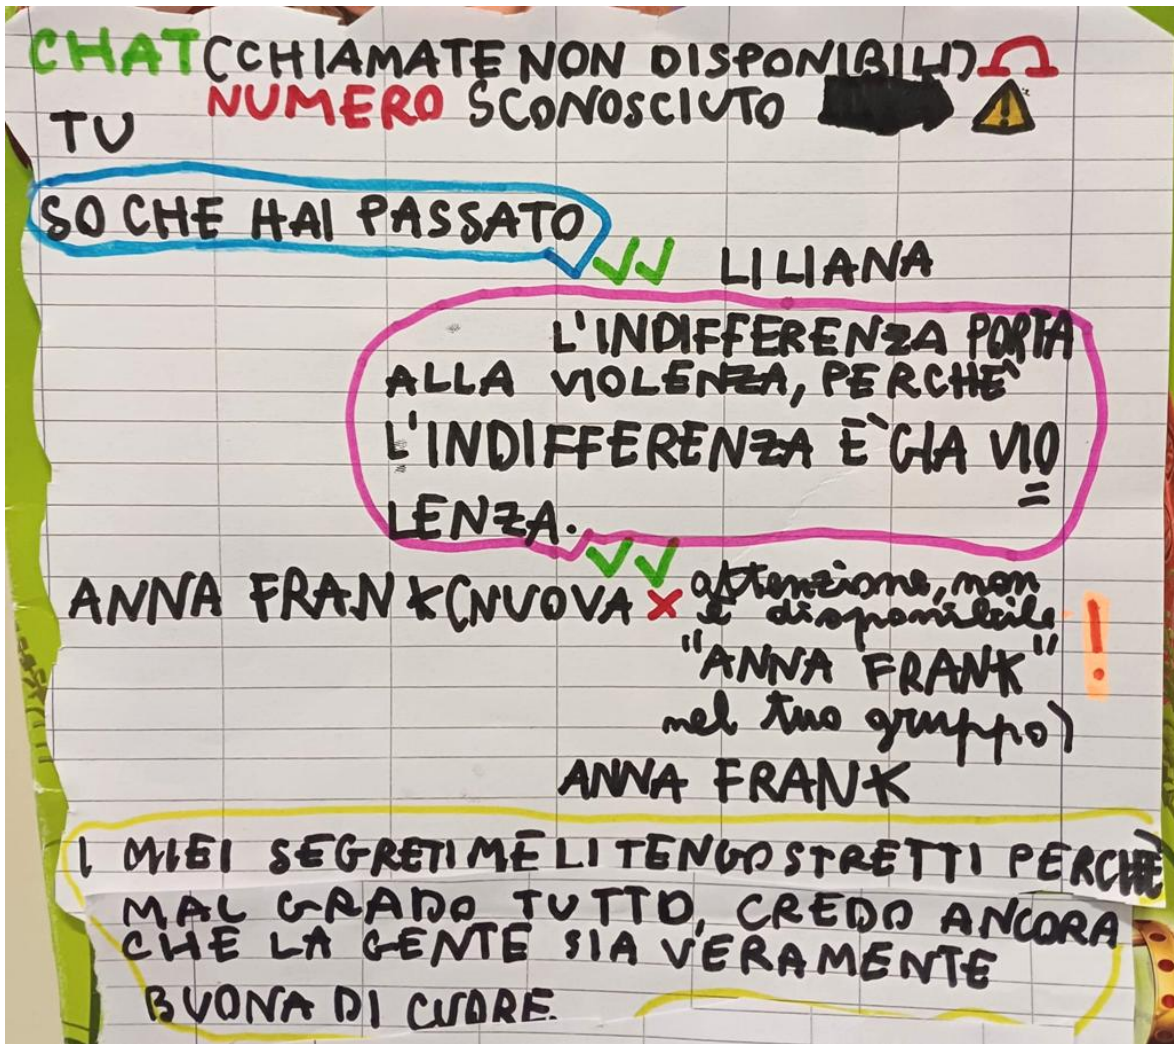 CHAT (CHIAMATE NON DISPONIBILI)
NUMERO SCONOSCIUTO
TU
SO CHE HAI PASSATO
LILIANA
L'INDIFFERENZA PORTA
ALLA VIOLENZA, PERCHÈ
L'INDIFFERENZA È GIA VIO
LENZA.
ANNA FRANK (NUOVA attenzione, non
è disponibile
"ANNA FRANK"
nel tuo gruppo)
ANNA FRANK
I MIEI SEGRETI ME LI TENGO STRETTI PERCHÈ
MAL GRADO TUTTO, CREDO ANCORA
CHE LA GENTE SIA VERAMENTE
BUONA DI CUORE.